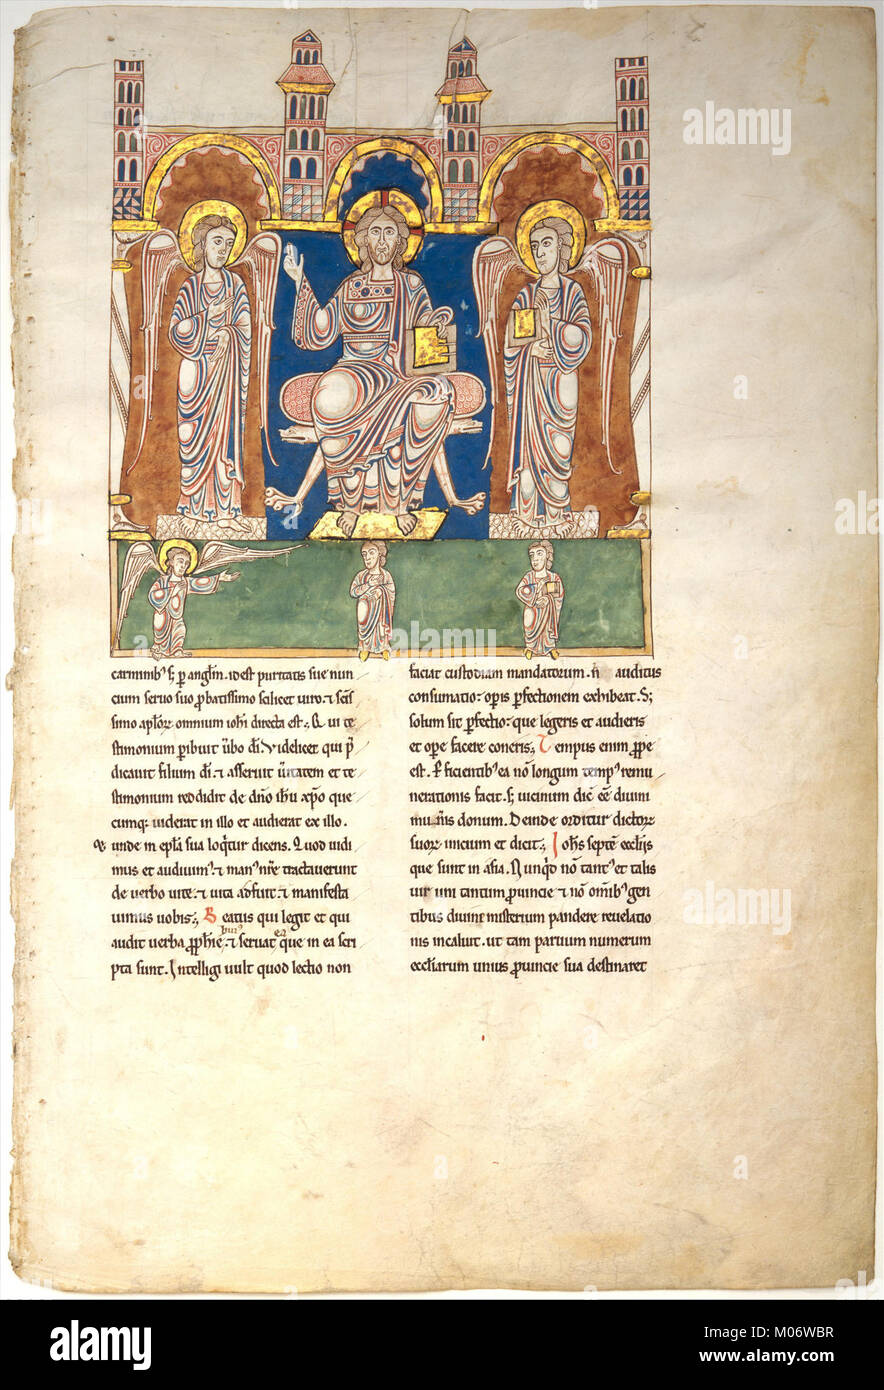 carminibꝰ s; p angl̄m. id est puritatis sue nun
cium seruo suo ꝓbatissimo scilicet uiro. ⁊ scīs
simo apl̄oꝝ omnium iohī directa est; Qui te
stimonium ꝑibuit ūbo dī. Videlicet qui p̄
dicauit filium dī. ⁊ asseruit ūitatem et te
stimonium reddidit de dn̄o ihū xp̄o que
cumq; uiderat in illo et audierat ex illo.
unde in epl̄a sua loq̄tur dicens. Quod uidi
mus et audiuimꝰ. ⁊ manꝰ nr̄e tractauerunt
de uerbo uite. ⁊ uita adfuit. ⁊ manifesta
uimus uobis; Beatus qui legit et qui
audit uerba ꝓph̄ie ⁊ seruat que in ea scri
pta sunt. Intelligi uult quod lectio non
faciat custodiam mandatorum. n̄ auditus
consumatio operis ꝑfectionem exhibeat. S;
solum sit ꝑfectio. que legeris et audieris
et ope facere coneris; Tempus enim ꝓpe
est. ꝑficientibꝰ ea nō longum tempꝰ remu
nerationis facit. s; uicinum diē eē diuini
mun̄is donum. Deinde orditur dictorꝝ
suoꝝ inicium et dicit; Ioh̄s septē eccl̄iis
que sunt in asia. Nunq̇d nō tantꝰ et talis
uir uni tantum ꝓuincie ⁊ nō om̄ibꝰ gen
tibus diuini misterium pandere reuelatio
nis incaluit. ut tam paruum numerum
eccl̄iarum unius ꝓuincie sua destinaret
alamy
Image ID: M06WBR
www.alamy.com